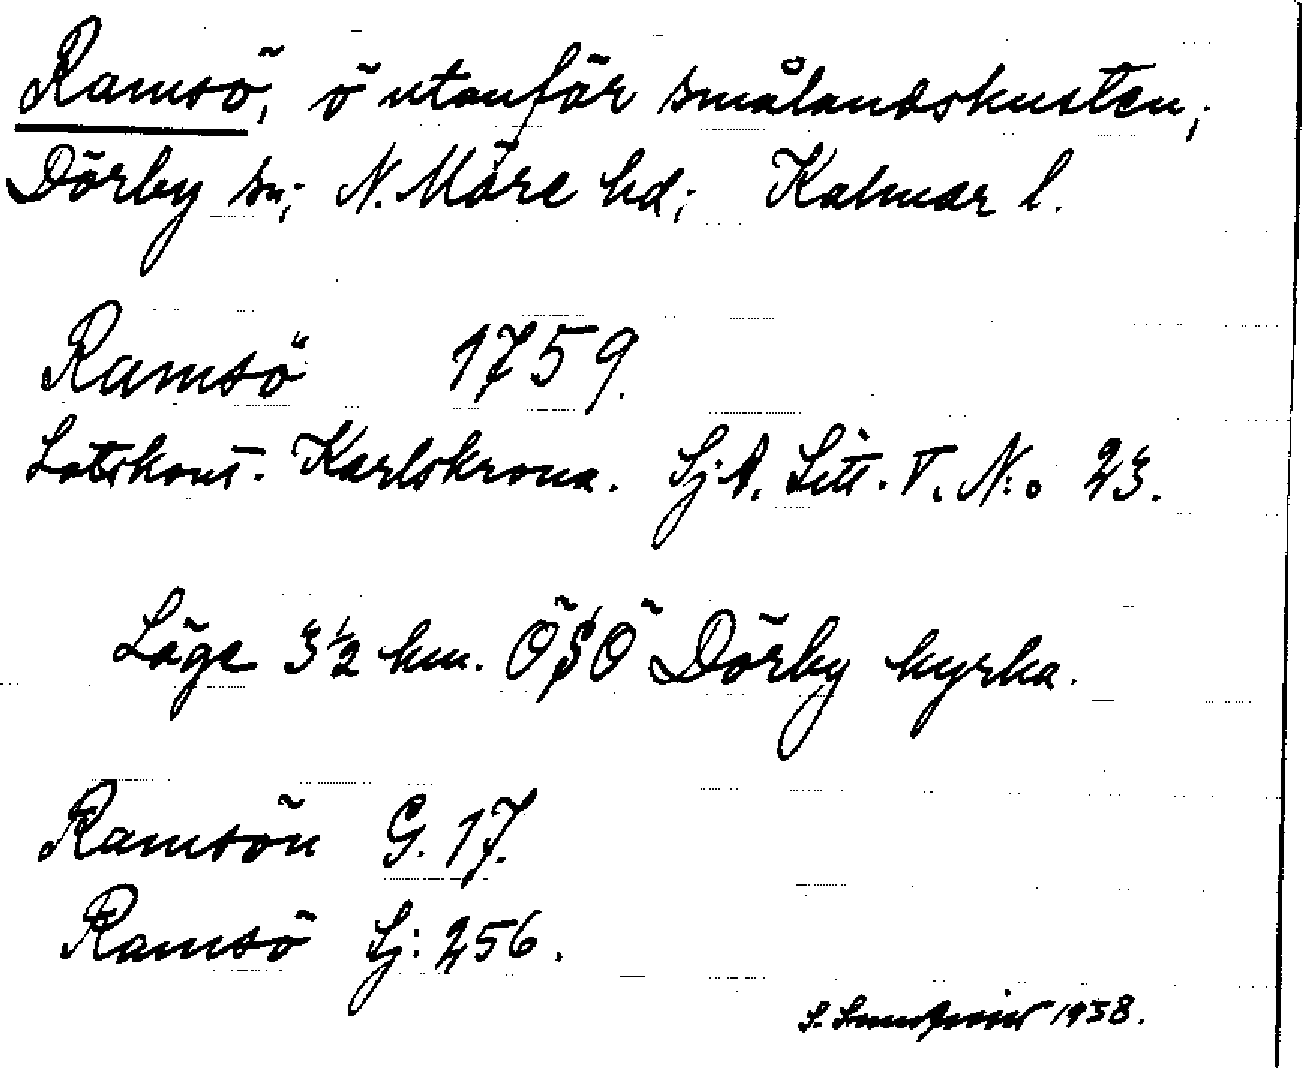 Ramsö, ö utanför smålandskusten;
Dörby sn; N. Möre hd; Kalmar l.
Ramsö 1759.
Lotskont. Karlskrona. Sj.A. Litt. T. N:o 23.
Läge 3 1/2 km. ÖSÖ Dörby kyrka.
Ramsön G. 17.
Ramsö Sj: 256.
S. 1938.